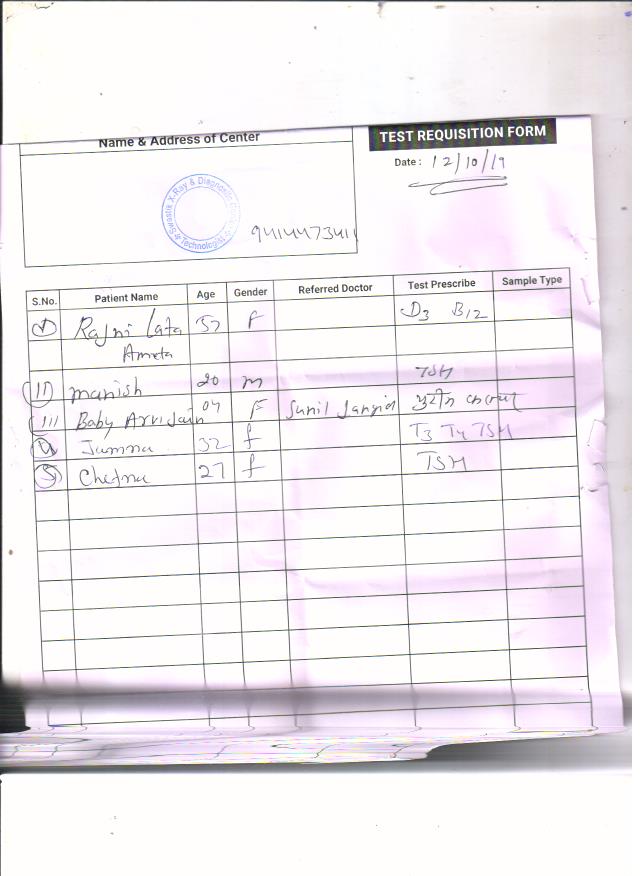 Name & Address of Center
TEST REQUISITION FORM
Date : 12/10/19
Swastik X-Ray & Diagnostic
Technologist
9414473411
S.No. Patient Name Age Gender Referred Doctor Test Prescribe Sample Type
① Rajni Lata 57 F D3 B12
Ameta
II) Manish 20 M TSH
III) Baby Arvi Jain 04 F Sunil Jangid यूरीन
Jamna 32 f T3 T4 TSH
⑤ Chetna 27 f TSH